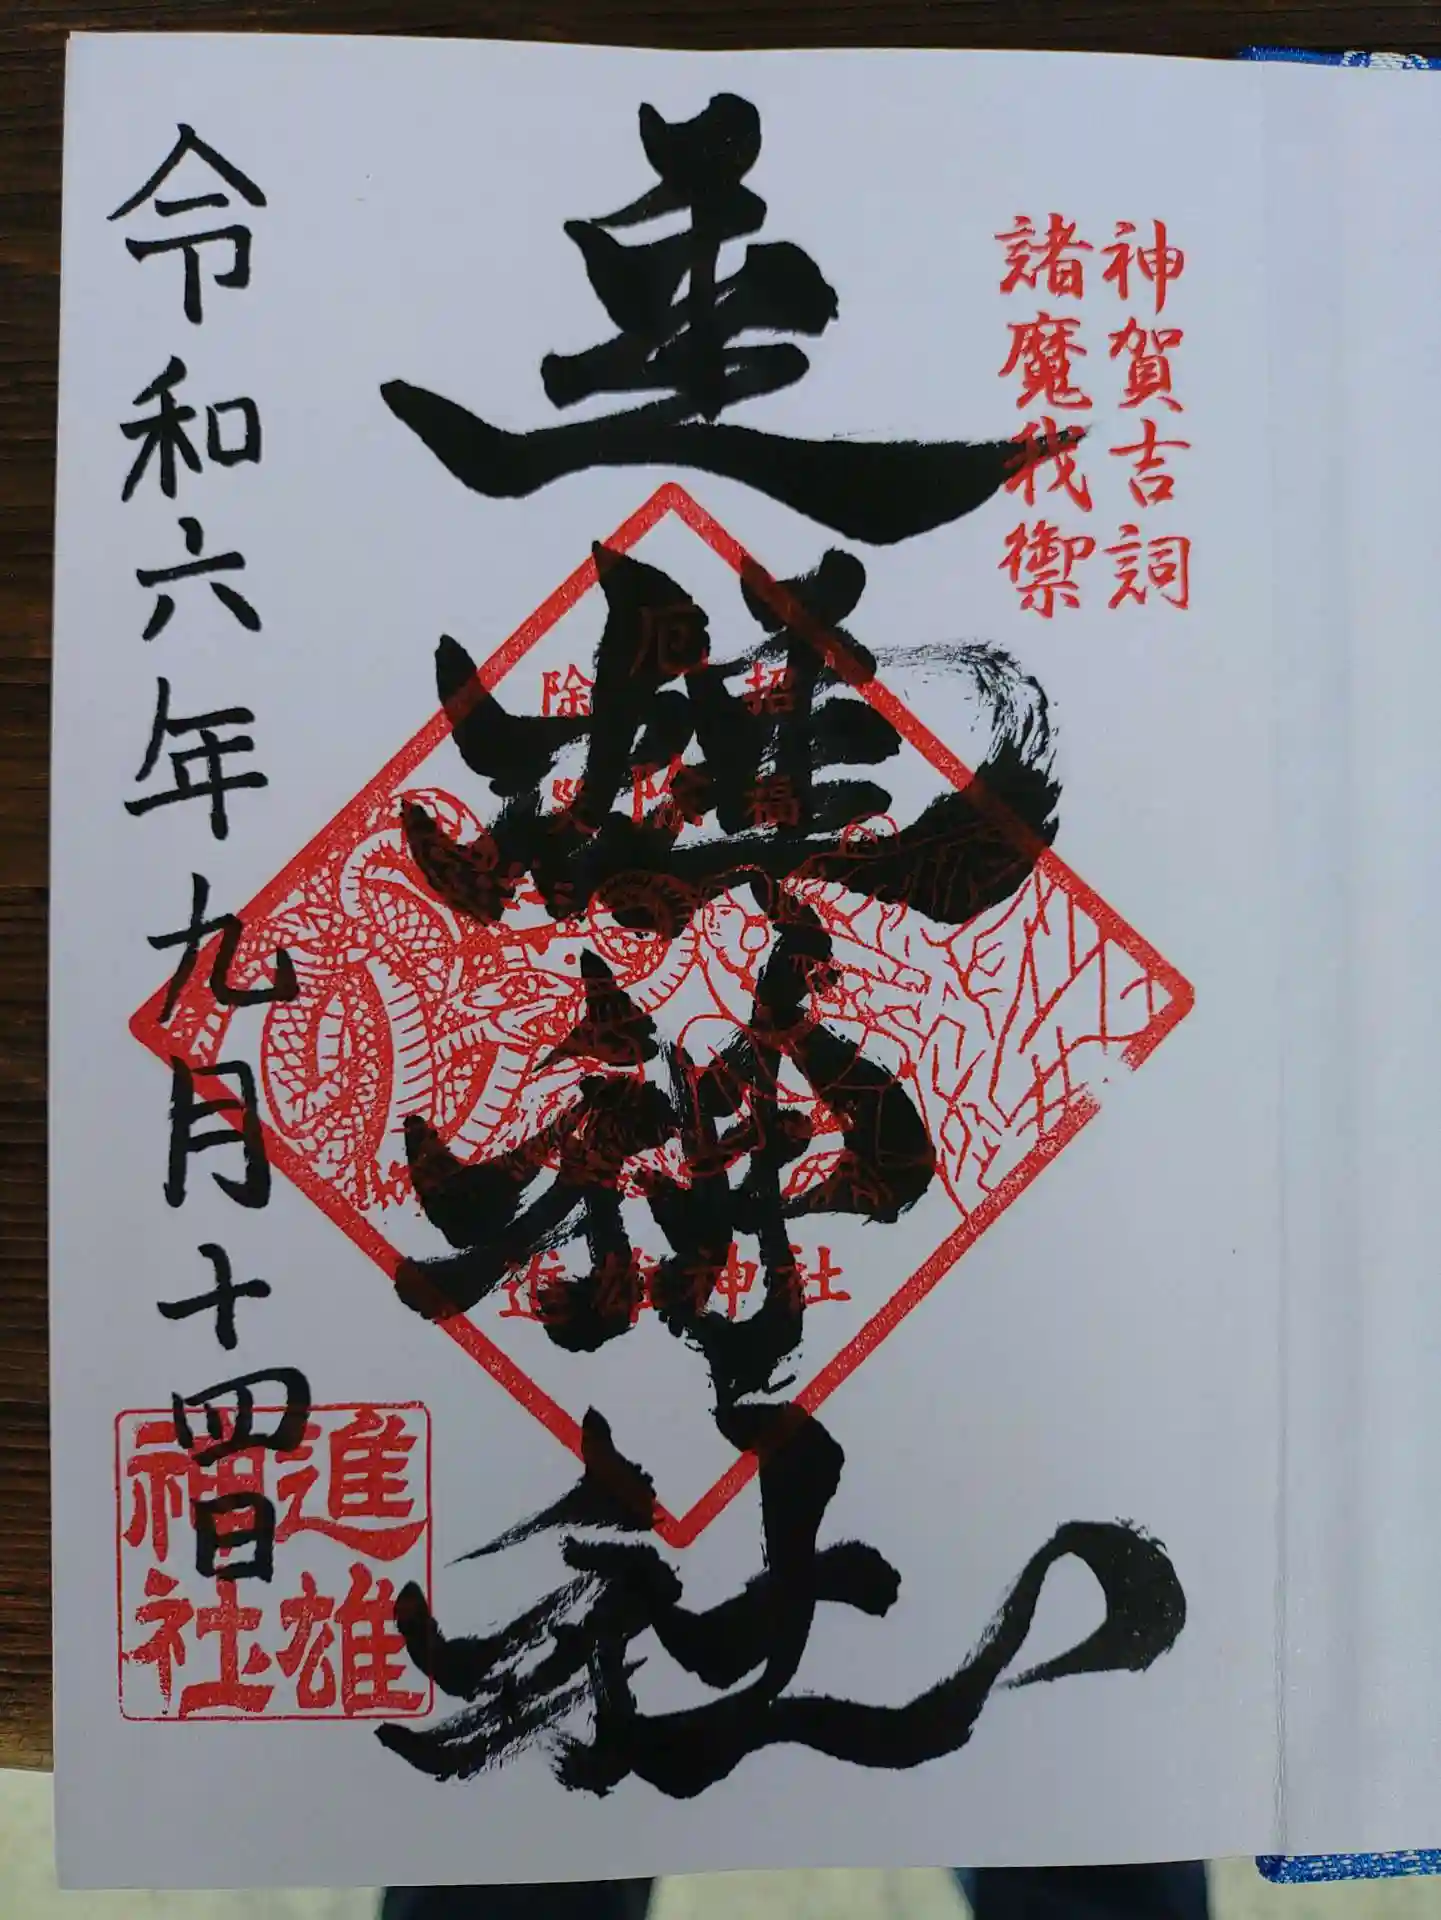 神賀吉詞
諸魔我禦
進雄神社
招福
厄除
除災
進雄神社
令和六年九月十四日
進雄
神社